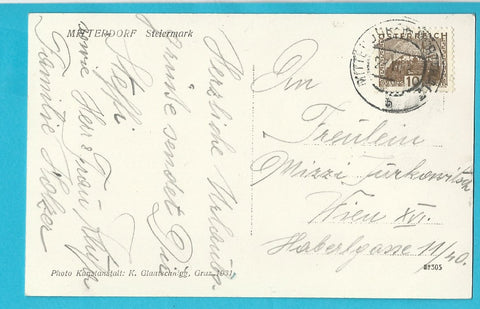 MITTERDORF Steiermark
Herzliche Urlaubs-
grüsse sendet Dir
Steffi
sowie Herr & Frau
Familie Holzer
ÖSTERREICH
10
An
Fräulein
Mizzi Jurkowitsch
Wien XVI.
Haberlgasse 11/40.
Photo Kunstanstalt: K. Glantschnigg, Graz 1931
81305